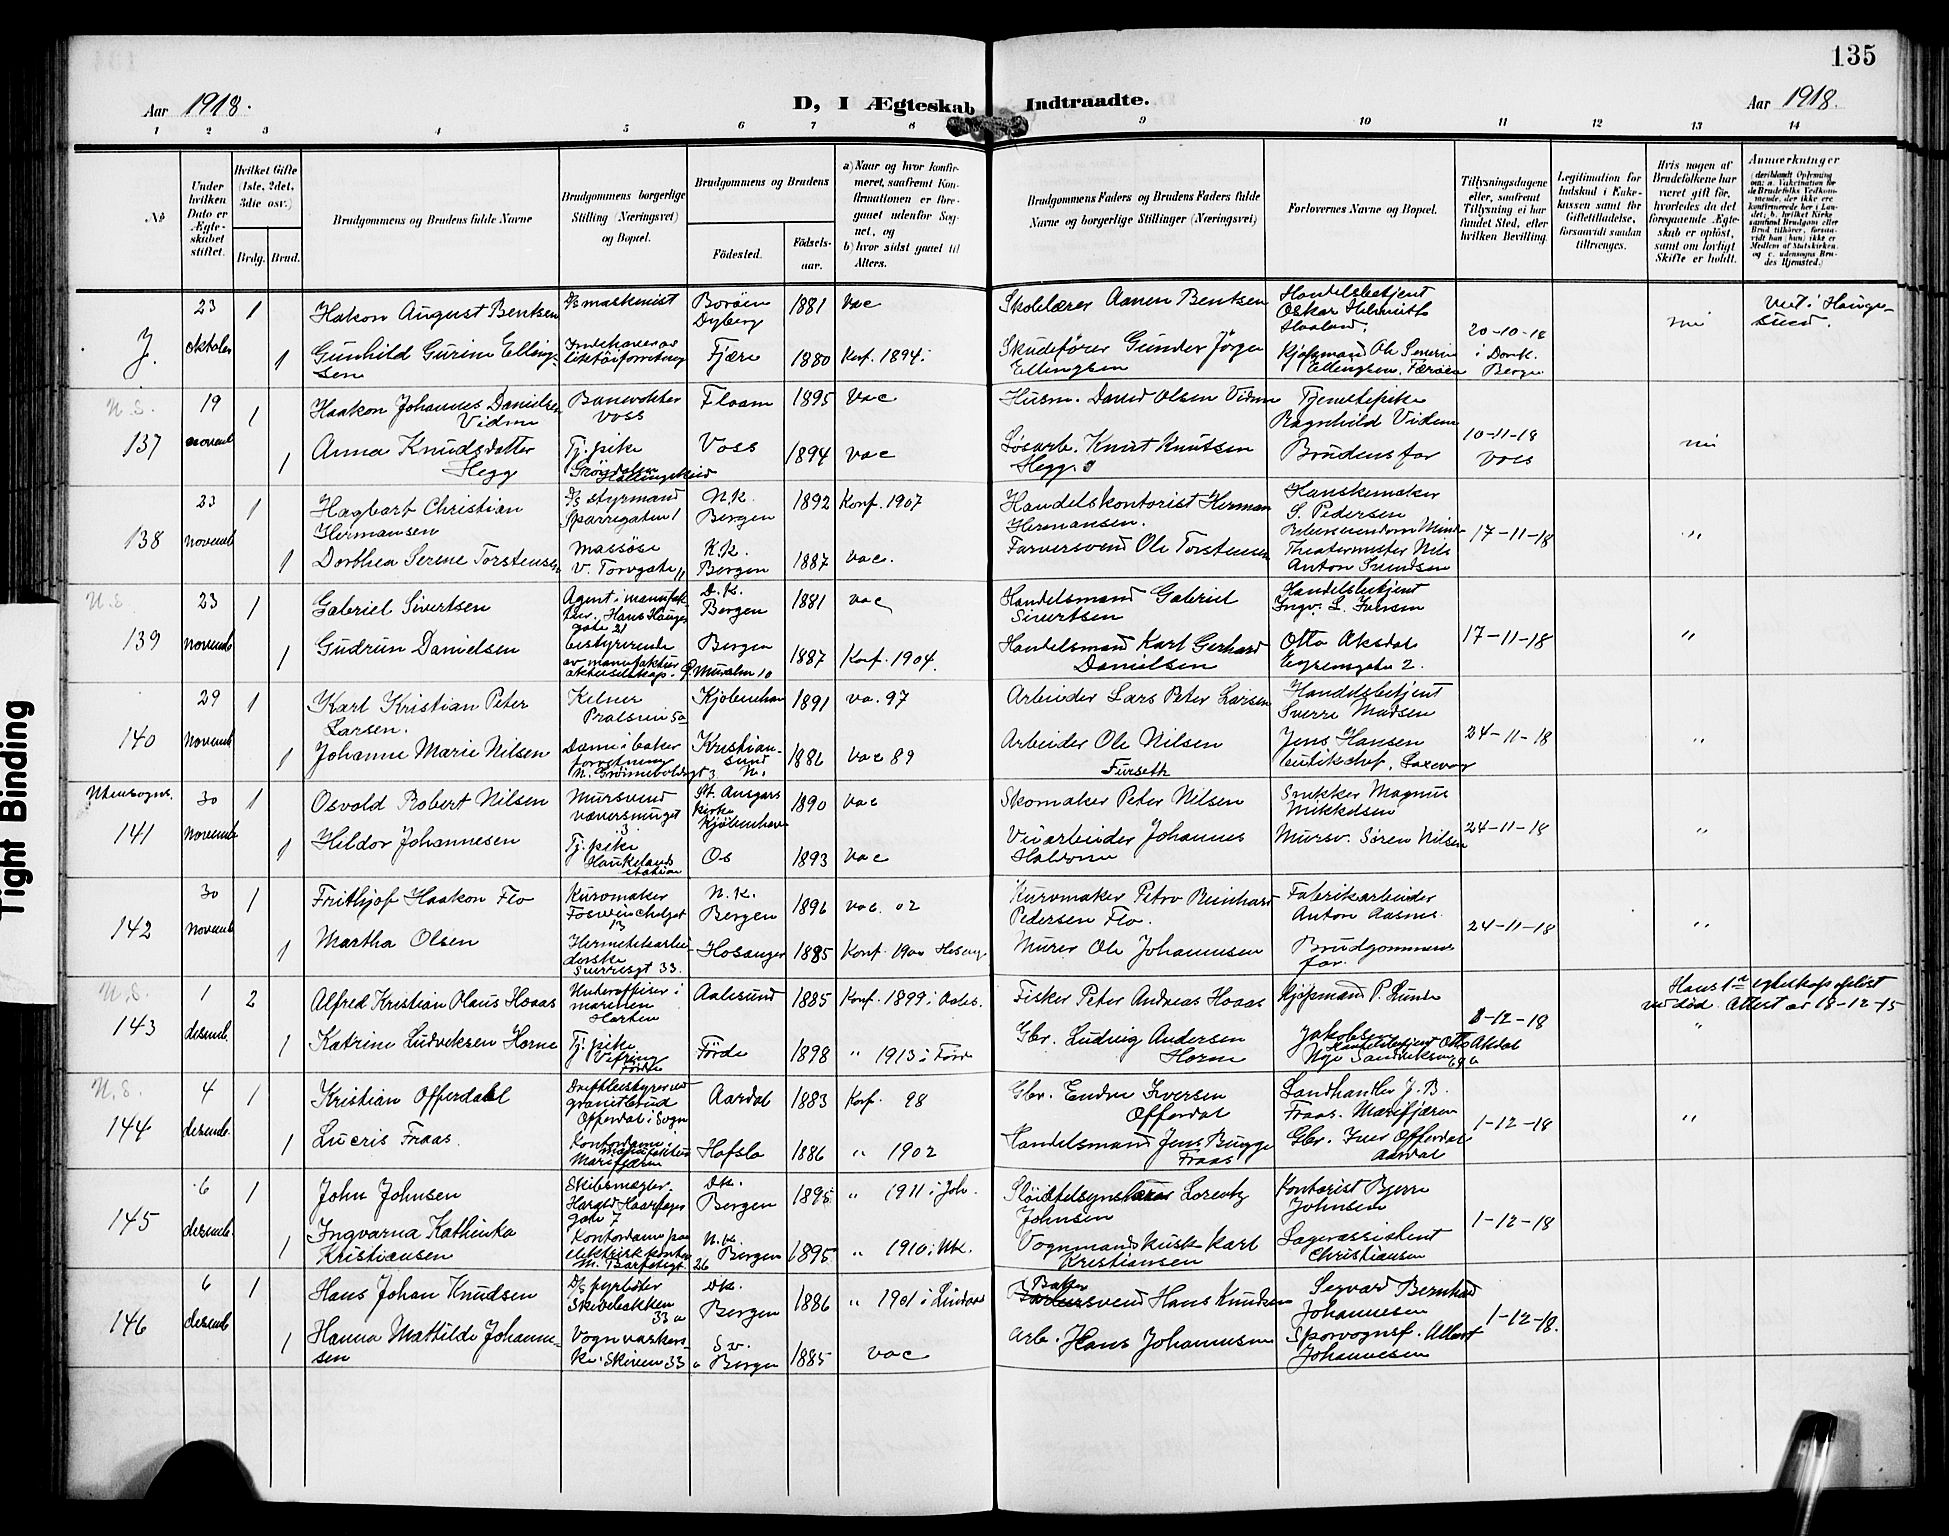 135
Aar 1918.
D, I Ægteskab Indtraadte.
Aar 1918.
1 2 3 4 5 6 7 8 9 10 11 12 13 14
No
Under hvilken Dato er Ægteskabet stiftet.
Hvilket Gifte (1ste, 2det, 3die osv.)
Brdg. Brud.
Brudgommens og Brudens fulde Navne
Brudgommens borgerlige Stilling (Næringsvei) og Bopæl.
Brudgommens og Brudens
Födested.
Födselsaar.
a) Naar og hvor konfirmeret, saafremt Konfirmationen er foregaaet udenfor Sognet, og
b) hvor sidst gaaet til Alters.
Brudgommens Faders og Brudens Faders fulde Navne og borgerlige Stillinger (Næringsvei)
Forlovernes Navne og Bopæl.
Tillysningsdagene eller, saafremt Tillysning ei har fundet Sted, efter hvilken Bevilling.
Legitimation for Indskud i Enkekassen samt for Giftetilladelse, forsaavidt saadan tiltrænges.
Hvis nogen af Brudefolkene har været gift för, hvorledes da det foregaaende Ægteskab er oplöst, samt om lovligt Skifte er holdt.
Anmærkninger
J. 23 oktober
1 Hakon August Bentsen D/s maskinist Borøen Dyberg 1881 vac Skolelærer Aanen Bentsen Handelsbetjent Oskar Helmuth Haaland.
1 Gunhild Gurine Ellingsen Fjære 1880 Konf. 1894. Skudefører Gunder Jörgen Ellingsen
20-10-18 i Domk. Bergen nei Viet i Haugesund.
N.S. 137 19 novemb
1 Haakon Johannes Danielsen Vidme Banevokter Voss Flaam 1895 vac Husm. David Olsen Vidme Tjenestepike Ragnhild Vidme
1 Anna Knudsdatter Hegg Tj. pike Voss 1894 vac Løsarb. Knut Knutsen Hegg Brudens far
10-11-18 Voss nei
138 23 novemb
1 Hagbart Christian Hermansen D/s styrmand Sparregaten 1 N.K. Bergen 1892 Konf. 1907 Handelskontorist Herman Hermansen. Hanskemaker S. Pedersen
1 Dorthea Serine Torstensen Massøse V. Torvgate 11 K.K. Bergen 1887 vac. Farversvend Ole Torstensen Theatermester Nils Anton Svendsen
17-11-18 "
N.S. 139 23 novemb
1 Gabriel Sivertsen Agent i manufaktur. Hans Haugesgate 21 D.K. Bergen 1881 vac Handelsmand Gabriel Sivertsen Handelsbetjent Ingv. L. Iversen
1 Gudrun Danielsen bestyrerinde av manufaktur aktieselskap. Ø. Muralm 10 Bergen 1887 Konf. 1904. Handelsmand Karl Gerhard Danielsen Otto Aksdal
17-11-18 "
140 29 Novemb
1 Karl Kristian Peter Larsen. Kelner Kjøbenhavn 1891 va. 97 Arbeider Lars Peter Larsen Handelsbetjent Sverre Madsen
1 Johanne Marie Nilsen Dame i baker forretning Kristiansund N. 1886 vac 89 Arbeider Ole Nilsen Furseth Jens Hansen butikchef, Laxevaag
24-11-18 "
Utensogns. 141 30 Novemb
1 Osvald Robert Nilsen Mursvend Væversmuget 3 St. Ansgars kirke Kjøbenhavn 1890 vac Skomaker Peter Nilsen Snikker Magnus Mikkelsen
1 Hildor Johannesen Tj. pike Haukelands station Os 1893 vac Veiarbeider Johannes Halvorsen Mursv. Søren Nilsen
24-11-18 "
142 30 Novemb
1 Frithjof Haakon Flo Kurvmaker Fosswinckelsgt 13 N.K. Bergen 1896 vac. 02 Kurvmaker Petro Reinhard Pedersen Flo. Fabrikarbeider Anton Aasmus
1 Martha Olsen Hermetikarbeiderske Sverresgt 33. Hosanger 1885 Konf. 1900 Hosang Murer Ole Johannesen Brudgommens far.
24-11-18 "
N.S. 143 1 desemb.
2 Alfred Kristian Olaus Hoaas Underoffiser i marinen Horten Aalesund 1885 Konf. 1899 i Aales. Fisker Peter Andreas Hoaas Kjøpmand P. Lunde
1 Katrine Ludviksen Horne Tj. pike Vefring Førde Førde 1898 " 1913 i Førd Gbr. Ludvig Andersen Horne Jakobsen Handelsbetjent Otto Aksdal Nye Sandviksvei 69a
1-12-18 Hans 1ste egteskap opløst ved død. Attest av 18-12-15 "
N.S. 144 4 desemb.
1 Kristian Offerdahl Driftbestyrer ved granitbrud Offerdal i Sogn Aardal 1883 Konf. 98 Gbr. Endre Iversen Offerdal Landhandler J. B. Fraas. Marifjæren
1 Lucris Fraas. Kontordame Marifjæren Hafslo 1886 " 1902 Handelsmand Jens Bugge Fraas Gbr. Iver Offerdal Aardal
1-12-18 "
145 6 desemb.
1 John Johnsen Skibsmægler. Harald Haarfagersgate 7 DK. Bergen 1895 " 1911 i Joh. Lorentz Johnsen Kontorist Bjarne Johnsen
1 Ingvarna Kathinka Kristiansen Kontordame paa elektrisk kontor M. Barfotsgt. 26 N.K. Bergen 1895 " 1910 i Nk. Vognmandskusk Karl Kristiansen Lagerassistent Christiansen
1-12-18
146 6 desemb
1 Hans Johan Knudsen D/s fyrbøter Skivebakken 33a DK. Bergen 1886 " 1901 i Lindaas Baker svend Hans Knudsen Segvard Bernhard Johannesen
1 Hanna Mathilde Johannesen Vognvaskerske. Skiveb 33a Sv. Bergen 1885 vac Arb. Hans Johannesen Sporvognsf. Albert Johannesen
1-12-18.
Tight Binding